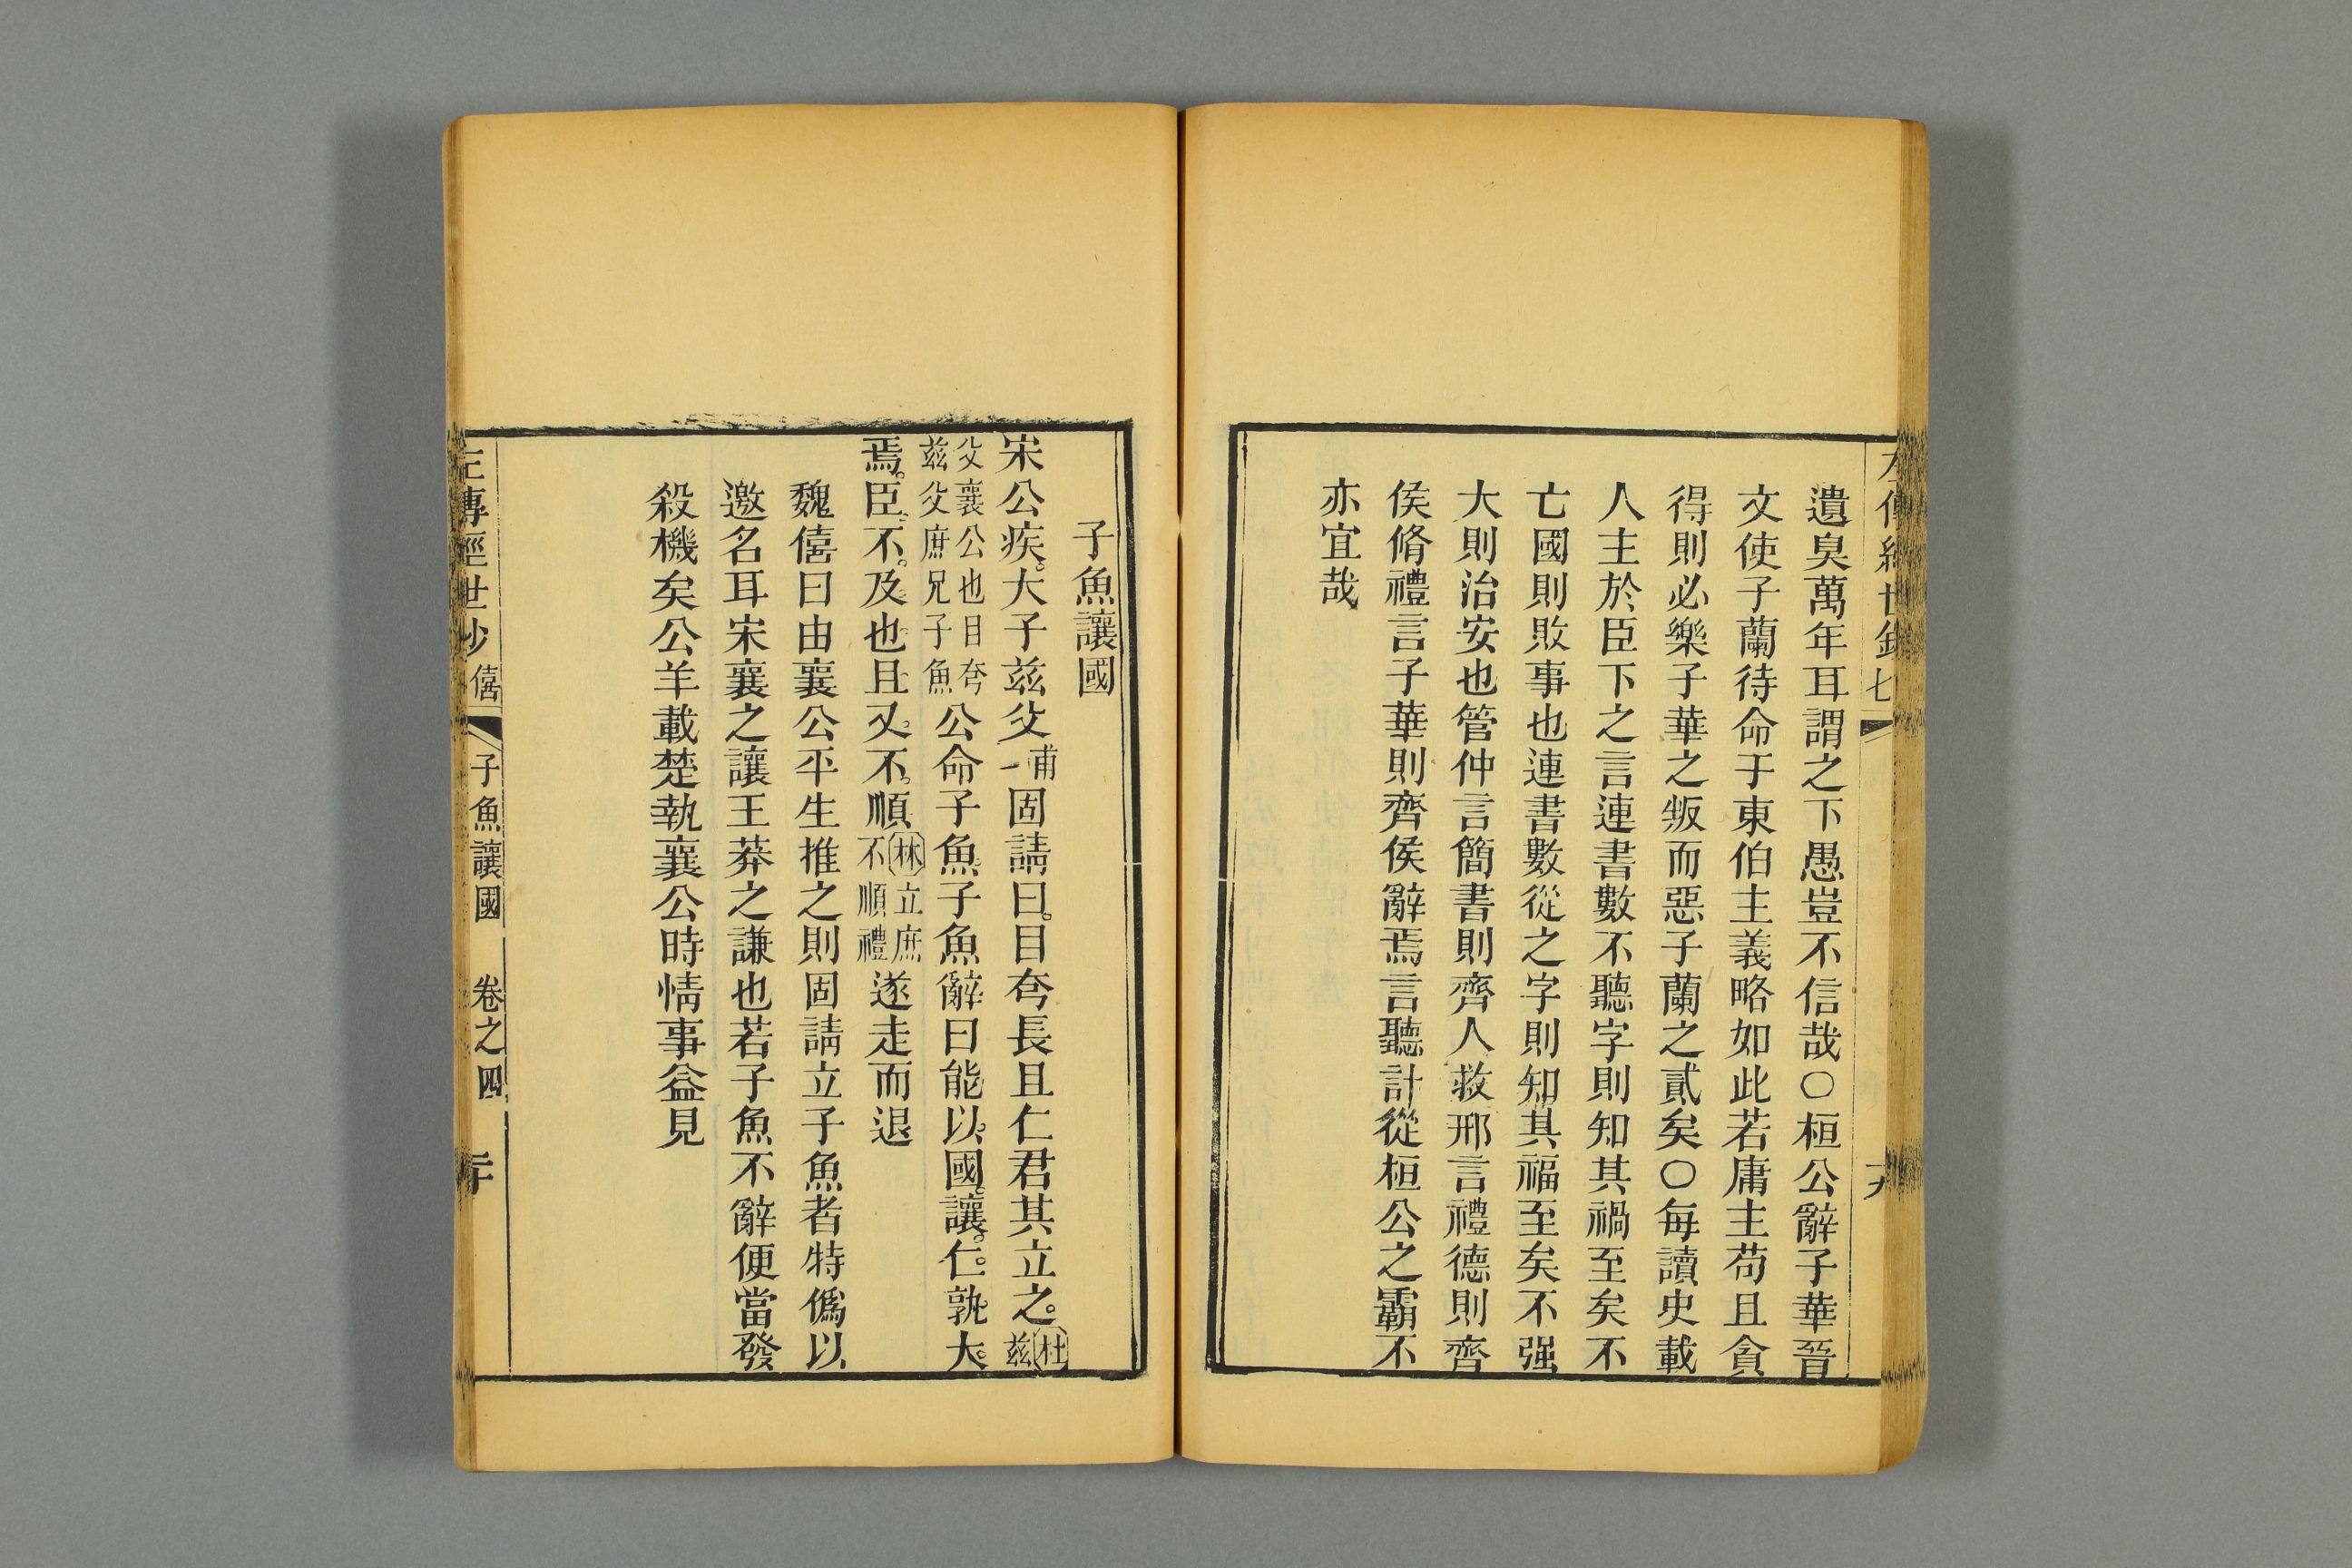 遺臭萬年耳謂之下愚豈不信哉○桓公辭子華晉
文使子蘭待命于東伯主義略如此若庸主苟且貪
得則必樂子華之叛而惡子蘭之貳矣○每讀史載
人主於臣下之言連書數不聽字則知其禍至矣不
亡國則敗事也連書數從之字則知其福至矣不强
大則治安也管仲言簡書則齊人救邢言禮德則齊
侯脩禮言子華則齊侯辭焉言聽計從桓公之霸不
亦宜哉
子魚讓國
宋公疾大子茲父甫固請曰目夸長且仁君其立之杜茲
父襄公也目夸
茲父庶兄子魚
公命子魚子魚辭曰能以國讓仁孰大
焉臣不及也且又不順林立庶
不順禮
遂走而退
魏僖曰由襄公平生推之則固請立子魚者特僞以
邀名耳宋襄之讓王莽之謙也若子魚不辭便當發
殺機矣公羊載楚執襄公時情事益見
左傳經世鈔 僖 子魚讓國 卷之四